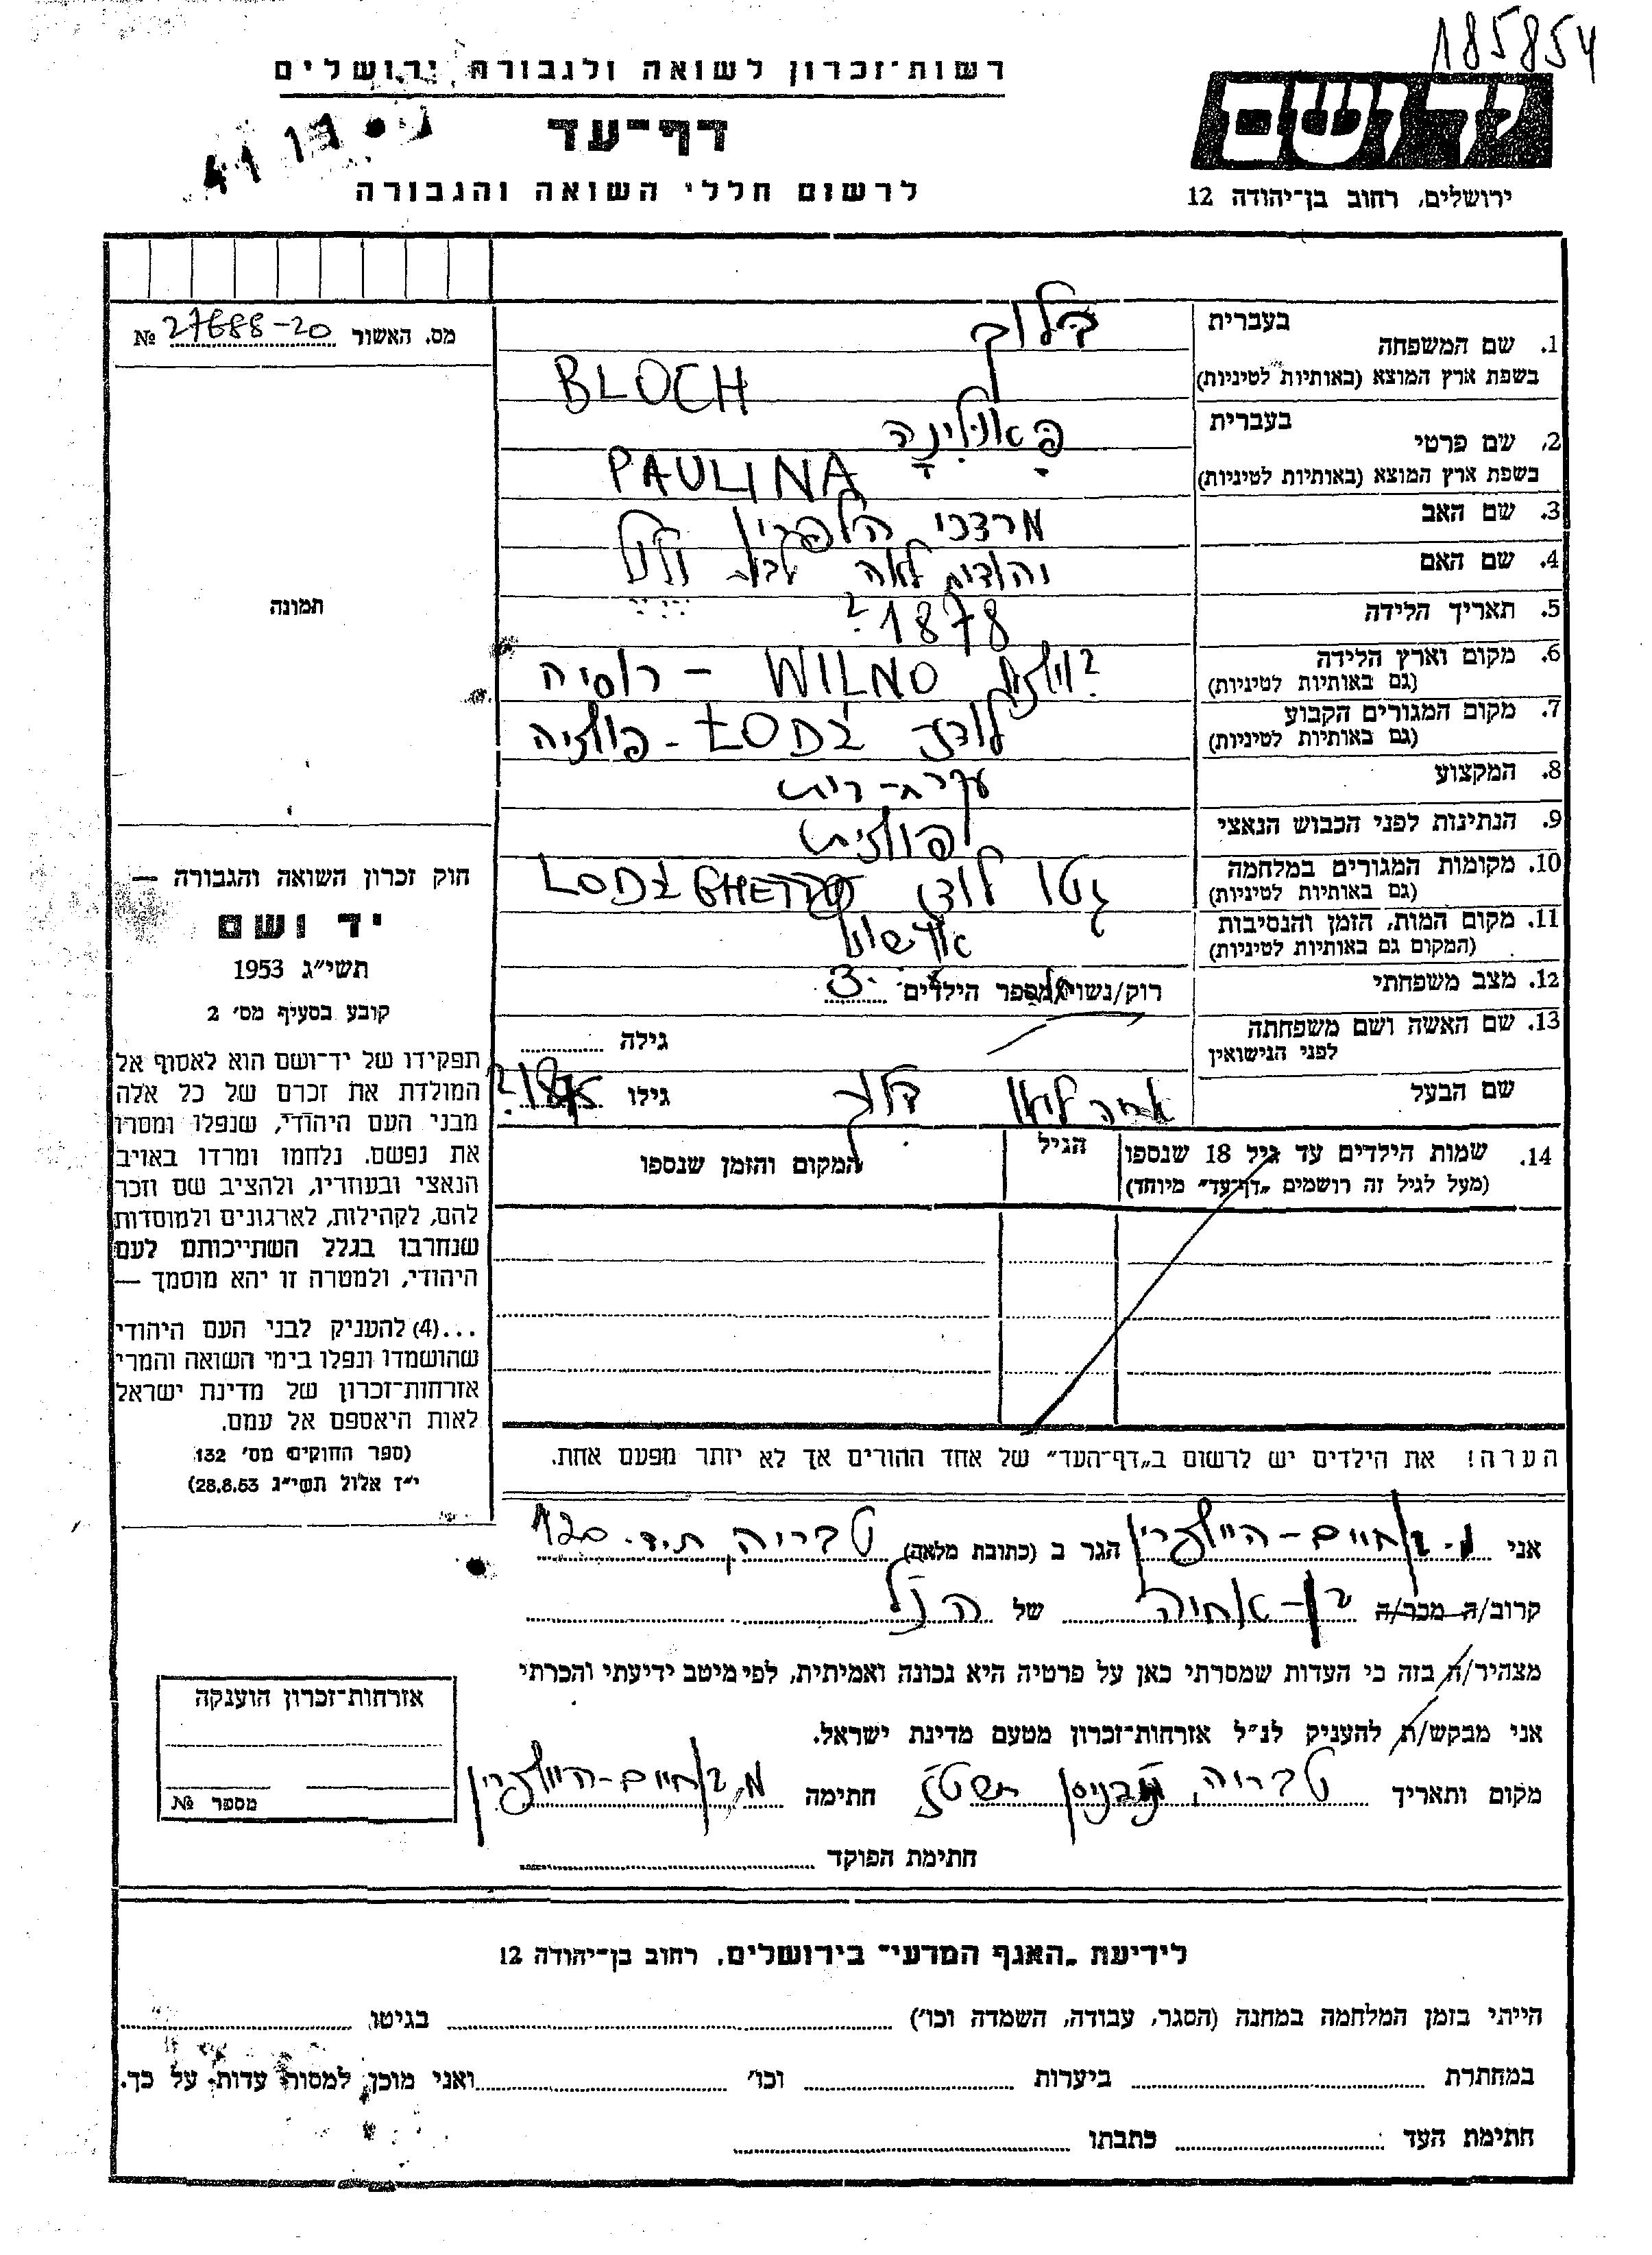 185854
רשות־זכרון לשואה ולגבורה ירושלים
ידושם
דף־עד
לרשום חללי השואה והגבורה
ירושלים, רחוב בן־יהודה 12
מס. האשור 27688-20 №
תמונה
חוק זכרון השואה והגבורה —
יד ושם
תשי״ג 1953
קובע בסעיף מס׳ 2
תפקידו של יד־ושם הוא לאסוף אל
המולדת את זכרם של כל אלה
מבני העם היהודי, שנפלו ומסרו
את נפשם. נלחמו ומרדו באויב
הנאצי ובעוזריו, ולהציב שם וזכר
להם, לקהילות, לארגונים ולמוסדות
שנחרבו בגלל השתייכותם לעם
היהודי, ולמטרה זו יהא מוסמך —
...(4) להעניק לבני העם היהודי
שהושמדו ונפלו בימי השואה והמרי
אזרחות־זכרון של מדינת ישראל
לאות היאספם אל עמם.
(ספר החוקים מס׳ 132
י״ז אלול תשי״ג 28.8.53)
בעברית בלוך
1. שם המשפחה
בשפת ארץ המוצא (באותיות לטיניות) BLOCH
בעברית פאולינה
2. שם פרטי
בשפת ארץ המוצא (באותיות לטיניות) PAULINA
3. שם האב מרדכי הלפרין
4. שם האם לאה
5. תאריך הלידה 1878 ?
6. מקום וארץ הלידה ? WILNO – רוסיה
(גם באותיות לטיניות)
7. מקום המגורים הקבוע לודז ŁODŹ - פולניה
(גם באותיות לטיניות)
8. המקצוע עקרת-בית
9. הנתינות לפני הכבוש הנאצי פולנית
10. מקומות המגורים במלחמה גטו לודז LODZ GHETTO
(גם באותיות לטיניות)
11. מקום המות, הזמן והנסיבות
(המקום גם באותיות לטיניות)
12. מצב משפחתי רוק/נשוי/מספר הילדים 3
13. שם האשה ושם משפחתה
לפני הנישואין גילה
שם הבעל אריה ליאון בלוך גילו 1875 ?
14. שמות הילדים עד גיל 18 שנספו הגיל המקום והזמן שנספו
(מעל לגיל זה רושמים „דף־עד״ מיוחד)
הערה! את הילדים יש לרשום ב„דף־העד״ של אחד ההורים אך לא יותר מפעם אחת.
אני מ. בן חיים-היילפרין הגר ב (כתובת מלאה) טבריה, ת.ד. 120
קרוב/ה מכר/ה בן-אחיה של הנ״ל
מצהיר/ה בזה כי העדות שמסרתי כאן על פרטיה היא נכונה ואמיתית, לפי מיטב ידיעתי והכרתי
אני מבקש/ת להעניק לנ״ל אזרחות־זכרון מטעם מדינת ישראל.
מקום ותאריך טבריה, בניסן תשט״ז חתימה מ. בן חיים-היילפרין
חתימת הפוקד
אזרחות־זכרון הוענקה
מספר №
לידיעת „האגף המדעי״ בירושלים, רחוב בן־יהודה 12
הייתי בזמן המלחמה במחנה (הסגר, עבודה, השמדה וכו׳) בגיטו
במחתרת ביערות וכו׳ ואני מוכן למסור עדות על כך.
חתימת העד כתבתו